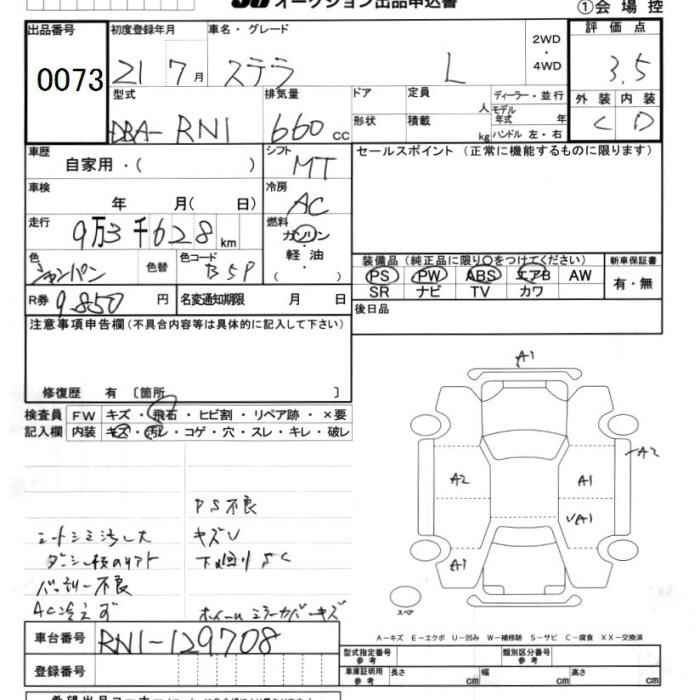 オークション出品申込書
①会場控
出品番号 初度登録年月 車名・グレード 2WD・4WD 評価点
0073 21 7月 ステラ L 3.5
型式 排気量 ドア 定員 人 ディーラー・並行 外装 内装
DBA-RN1 660cc 形状 積載 kg モデル年式 年 ハンドル 左・右 C D
車歴 シフト セールスポイント (正常に機能するものに限ります)
自家用・( ) MT
車検 冷房
年 月( 日) AC
走行 燃料
9万3千628km ガソリン・軽油・( )
色 色替 色コード 装備品 (純正品に限り○をつけてください) 新車保証書
シャンパン B5P PS PW ABS エアB AW 有・無
SR ナビ TV カワ
R券 9,850円 名変通知期限 月 日 後日品
注意事項申告欄(不具合内容等は具体的に記入して下さい)
修復歴 有〔箇所 〕
検査員 FW キズ・飛石・ヒビ割・リペア跡・×要
記入欄 内装 キズ・汚レ・コゲ・穴・スレ・キレ・破レ
A1
A2
A2 A1
A1
A1
スペア
PS不良
シートシミ汚レ大 キズU
下回りSC
バッテリー不良
AC冷えず ホイールミラーカバーキズ
A-キズ E-エクボ U-凹み W-補修跡 S-サビ C-腐食 XX-交換済
車台番号 RN1-129708
型式指定番号 参考 類別区分番号 参考
登録番号 車庫証明用 参考 長さ cm 幅 cm 高さ cm